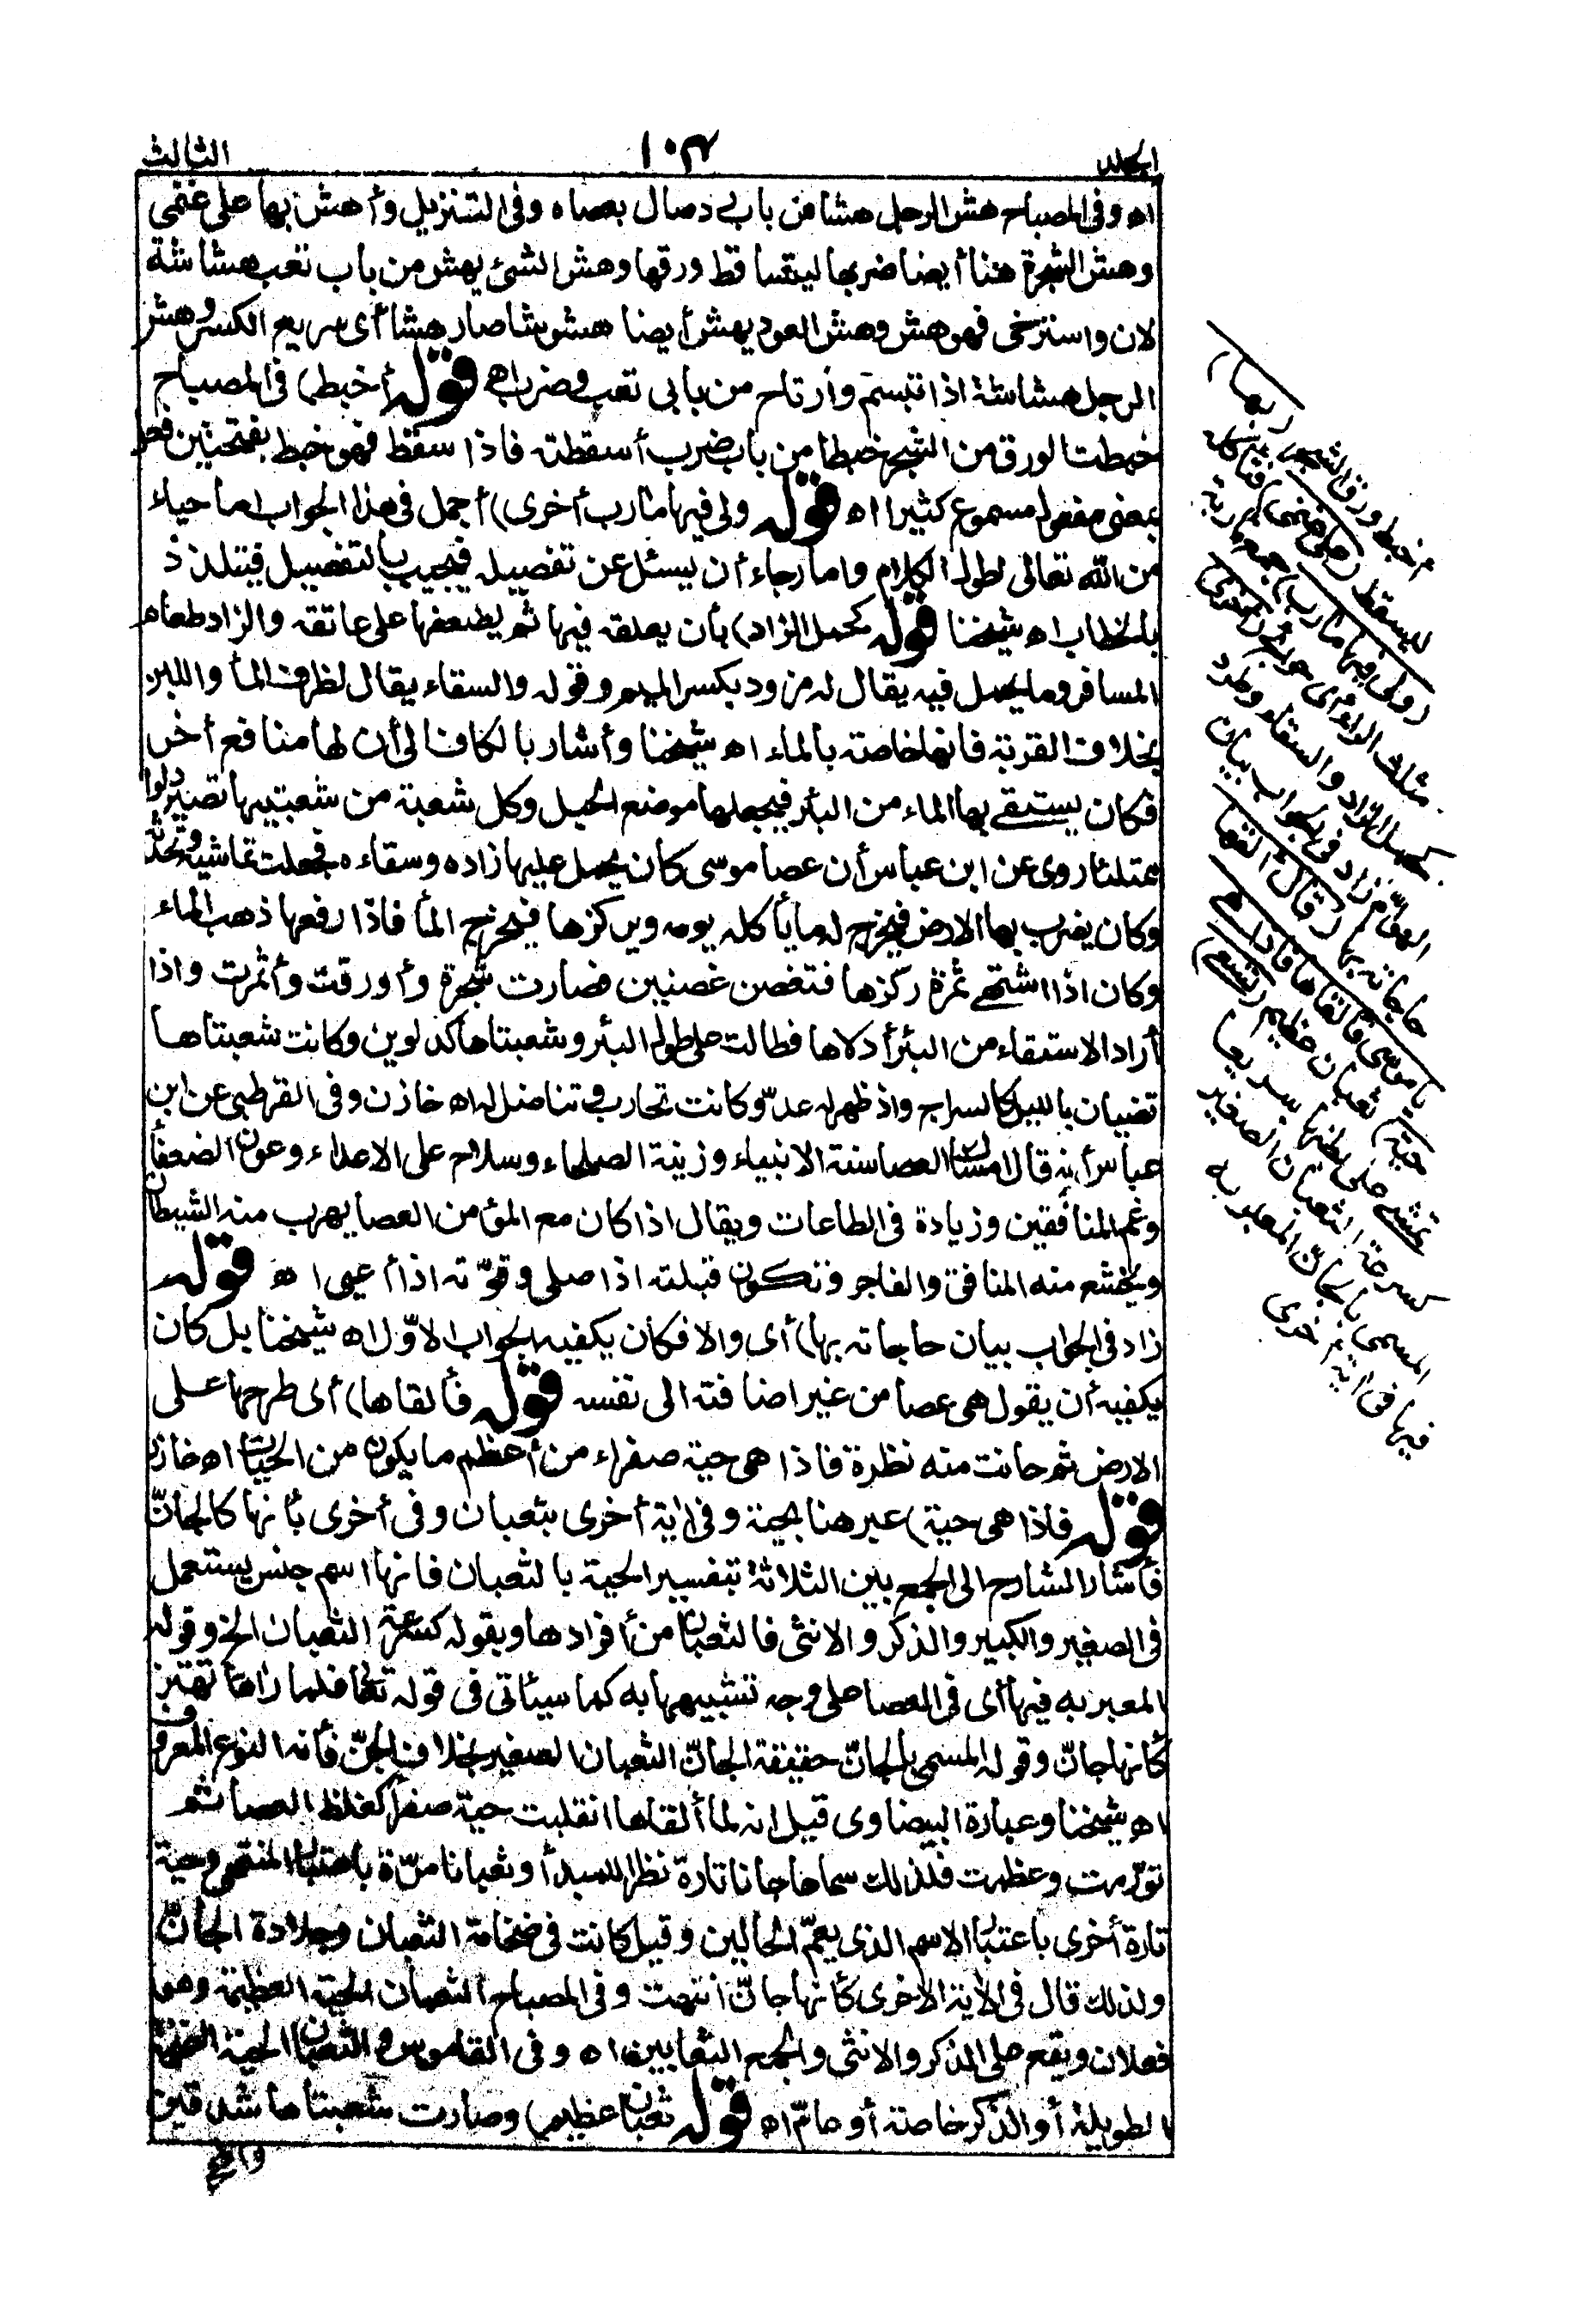 الجلد ١٠٣ الثالث
اه وفى المصباح هش الرجل هشا من باب رد صال بعصاه وفى التنزيل وأهش بها على غنمى
وهش الشجرة هشا أيضا ضربها ليتساقط ورقها وهش الشئ يهش من باب تعب هشاشة
لان واسترخى فهو هش وهش العود يهش أيضا هشوشا صار هشا أى سريع الكسر وهش
الرجل هشاشة اذا تبسم وارتاح من بابى تعب وضرب اه قوله أخبط) فى المصباح
خبطت الورق من الشجر خبطا من باب ضرب أسقطته فاذا سقط فهو خبط بفتحتين فعل
بمعنى مفعول مسموع كثيرا اه قوله ولى فيها مآرب أخرى) أجمل فى هذا الجواب اما حياء
من الله تعالى لطول الكلام واما رجاء أن يسئل عن تفصيله فيجيب بالتفصيل فيتلذذ
بالخطاب اه شيخنا قوله كحمل الزاد) بأن يعلقه فيها ثم يضعها على عاتقه والزاد طعام
المسافر وما يحمل فيه يقال له مزود بكسر الميم وقوله والسقاء يقال لظرف الماء واللبن
بخلاف القربة فانها خاصة بالماء اه شيخنا وأشار بالكاف الى أن لها منافع أخر
فكان يستقى بها الماء من البئر فيجعلها موضع الحبل وكل شعبة من شعبتيها تصير دلوا
ممتلئا روى عن ابن عباس أن عصا موسى كان يحمل عليها زاده وسقاءه فجعلت تماشيه وتحدثه
وكان يضرب بها الارض فيخرج له ما يأكله يومه ويركزها فيخرج الماء فاذا رفعها ذهب الماء
وكان اذا اشتهى ثمرة ركزها فتغصن غصنين فصارت شجرة وأورقت وأثمرت واذا
أراد الاستقاء من البئر أدلاها فطالت على طول البئر وشعبتاها كدلوين وكانت شعبتاها
تضيان بالليل كالسراج واذ ظهر له عدو كانت تحارب وتناضل له اه خازن وفى القرطبى عن ابن
عباس أنه قال امساك العصا سنة الانبياء وزينة الصلحاء وسلاح على الاعداء وعون الضعفأ
وغم المنافقين وزيادة فى الطاعات ويقال اذا كان مع المؤمن العصا يهرب منه الشيطان
ويخشع منه المنافق والفاجر وتكون قبلته اذا صلى وقوّته اذا أعيى اه قوله
زاد فى الجواب بيان حاجاته بها) أى والا فكان يكفيه الجواب الاوّل اه شيخنا بل كان
يكفيه أن يقول هى عصا من غير اضافته الى نفسه قوله فألقاها) أى طرحها على
الارض ثم حانت منه نظرة فاذا هى حية صفراء من أعظم ما يكون من الحيات اه خازن
قوله فاذا هى حية) عبر هنا بحية وفى آية أخرى بثعبان وفى أخرى بأنها كالجانّ
فأشار الشارح الى الجمع بين الثلاثة بتفسير الحية بالثعبان فانها اسم جنس يستعمل
فى الصغير والكبير والذكر والانثى فالثعبان من أفرادها وبقوله كسرعة الثعبان الخ وقوله
المعبر به فيها أى فى العصا على وجه تشبيهها به كما سيأتى فى قوله تعالى فلما رآها تهتز
كأنها جانّ وقوله المسمى بالجانّ حقيقة الجانّ الثعبان الصغير بخلاف الجنّ فأنه النوع المعروف
اه شيخنا وعبارة البيضاوى قيل انه لما ألقاها انقلبت حية صفرأ كغلظ العصا ثم
تورّمت وعظمت فلذلك سماها جانا تارة نظرا للمبدأ وثعبانا مرّة باعتبار المنتهى وحية
تارة أخرى باعتبار الاسم الذى يعمّ الحالين وقيل كانت فى ضخامة الثعبان وجلادة الجانّ
ولذلك قال فى الآية الاخرى كأنها جانّ انتهت وفى المصباح الثعبان الحية العظيمة وهو
فعلان ويقع على الذكر والانثى والجمع الثعابين اه وفى القاموس والثعبان الحية الضخمة
الطويلة أو الذكر خاصة أو عامّ اه قوله ثعبان عظيم) وصارت شعبتاها شدقين
(بها)
من خبط ورق الشجر
ليسقط (على غنمى) فتأكله
(ولى فيها مآرب) جمع مأربة
مثلث الراء أى حوائج (أخرى)
كحمل الزاد والسقاء وطرد
الهوامّ زاد فى الجواب بيان
حاجاته بها (قال ألقها
يا موسى فألقاها فاذا هى
حية) ثعبان عظيم (تسعى)
تمشى على بطنها سريعا
كسرعة الثعبان الصغير
المسمى بالجانّ المعبر به
فيها فى آية أخرى